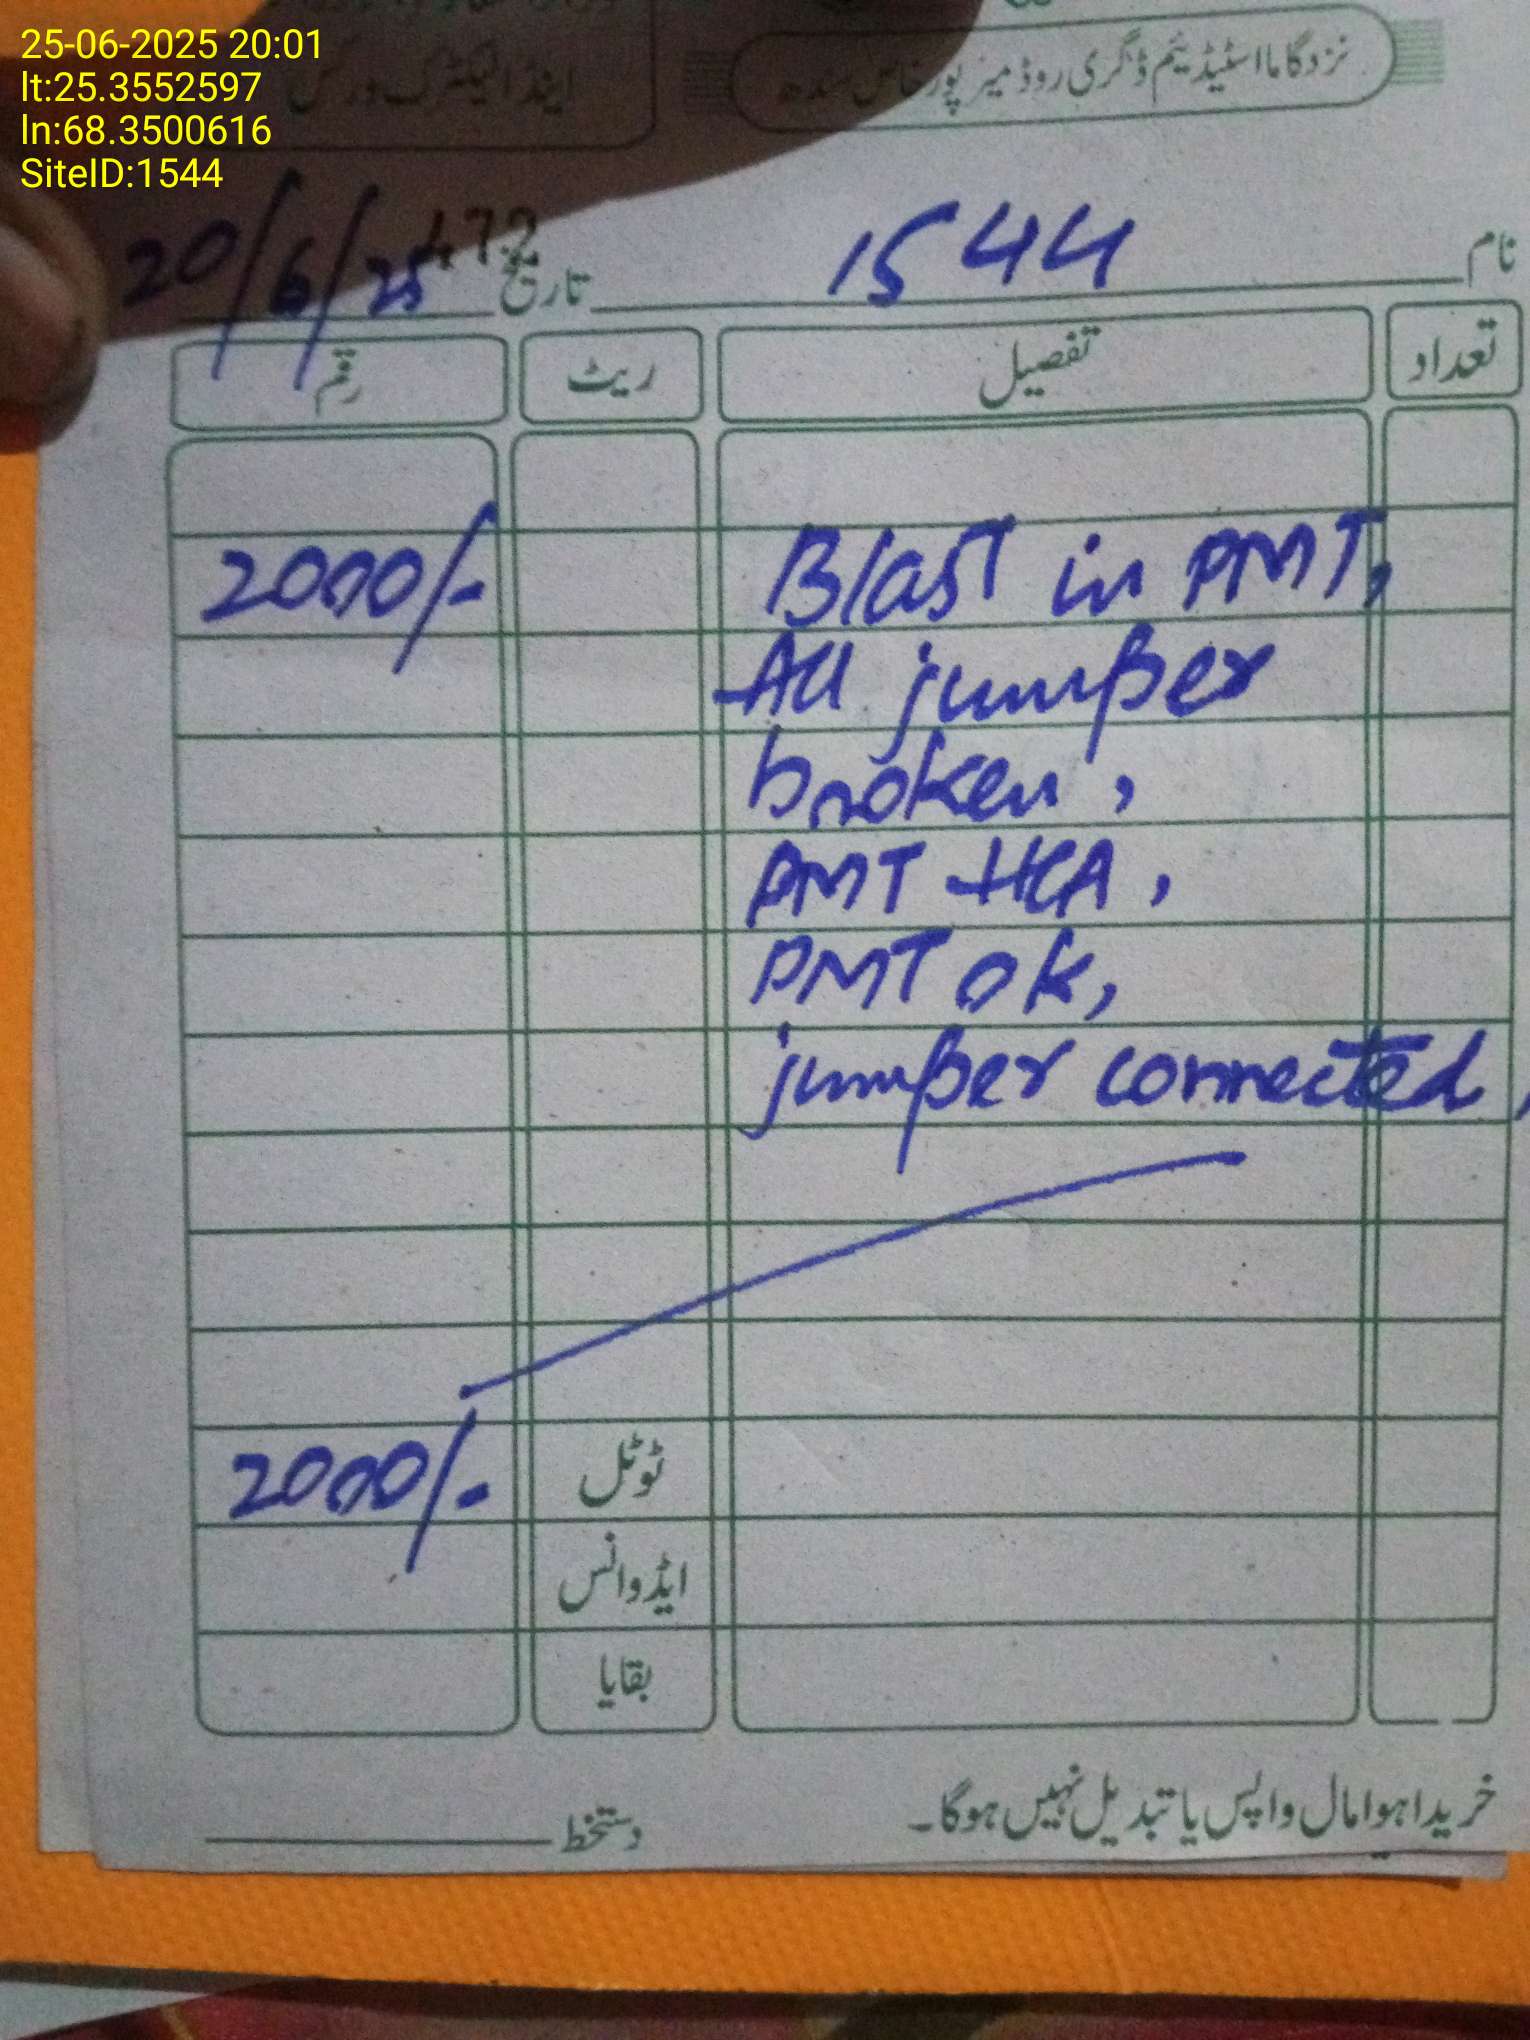 25-06-2025 20:01
lt:25.3552597
ln:68.3500616
SiteID:1544
اینڈ الیکٹرک ورکس
نزد گاما اسٹیڈیم ڈگری روڈ میرپورخاص سندھ
472
نام 1544 تاریخ 20/6/25
تعداد تفصیل ریٹ رقم
Blast in PMT, 2000/-
All jumper
broken,
PMT HCA,
PMT ok,
jumper connected,
ٹوٹل 2000/-
ایڈوانس
بقایا
خریدا ہوا مال واپس یا تبدیل نہیں ہوگا۔
دستخط